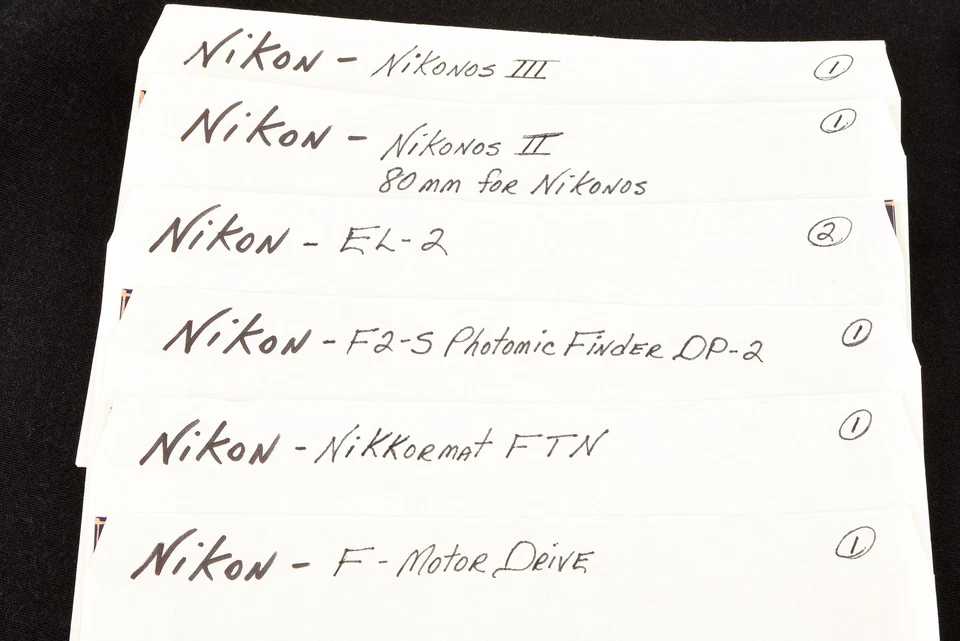 Nikon - Nikonos III 1
Nikon - Nikonos II 1
80mm for Nikonos
Nikon - EL-2 2
Nikon - F2-S Photomic Finder DP-2 1
Nikon - Nikkormat FTN 1
Nikon - F - Motor Drive 1